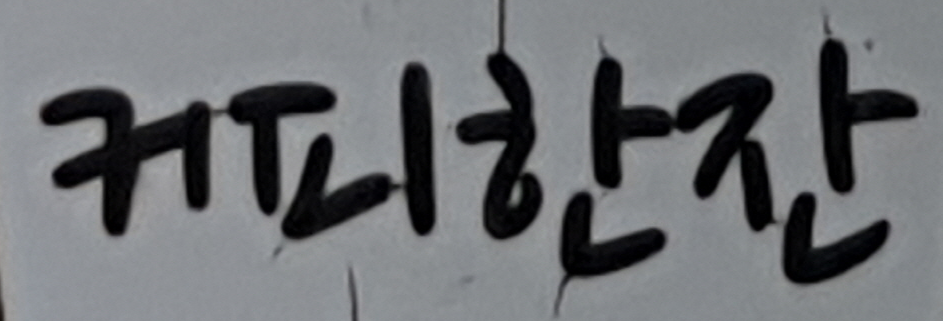 커피한잔